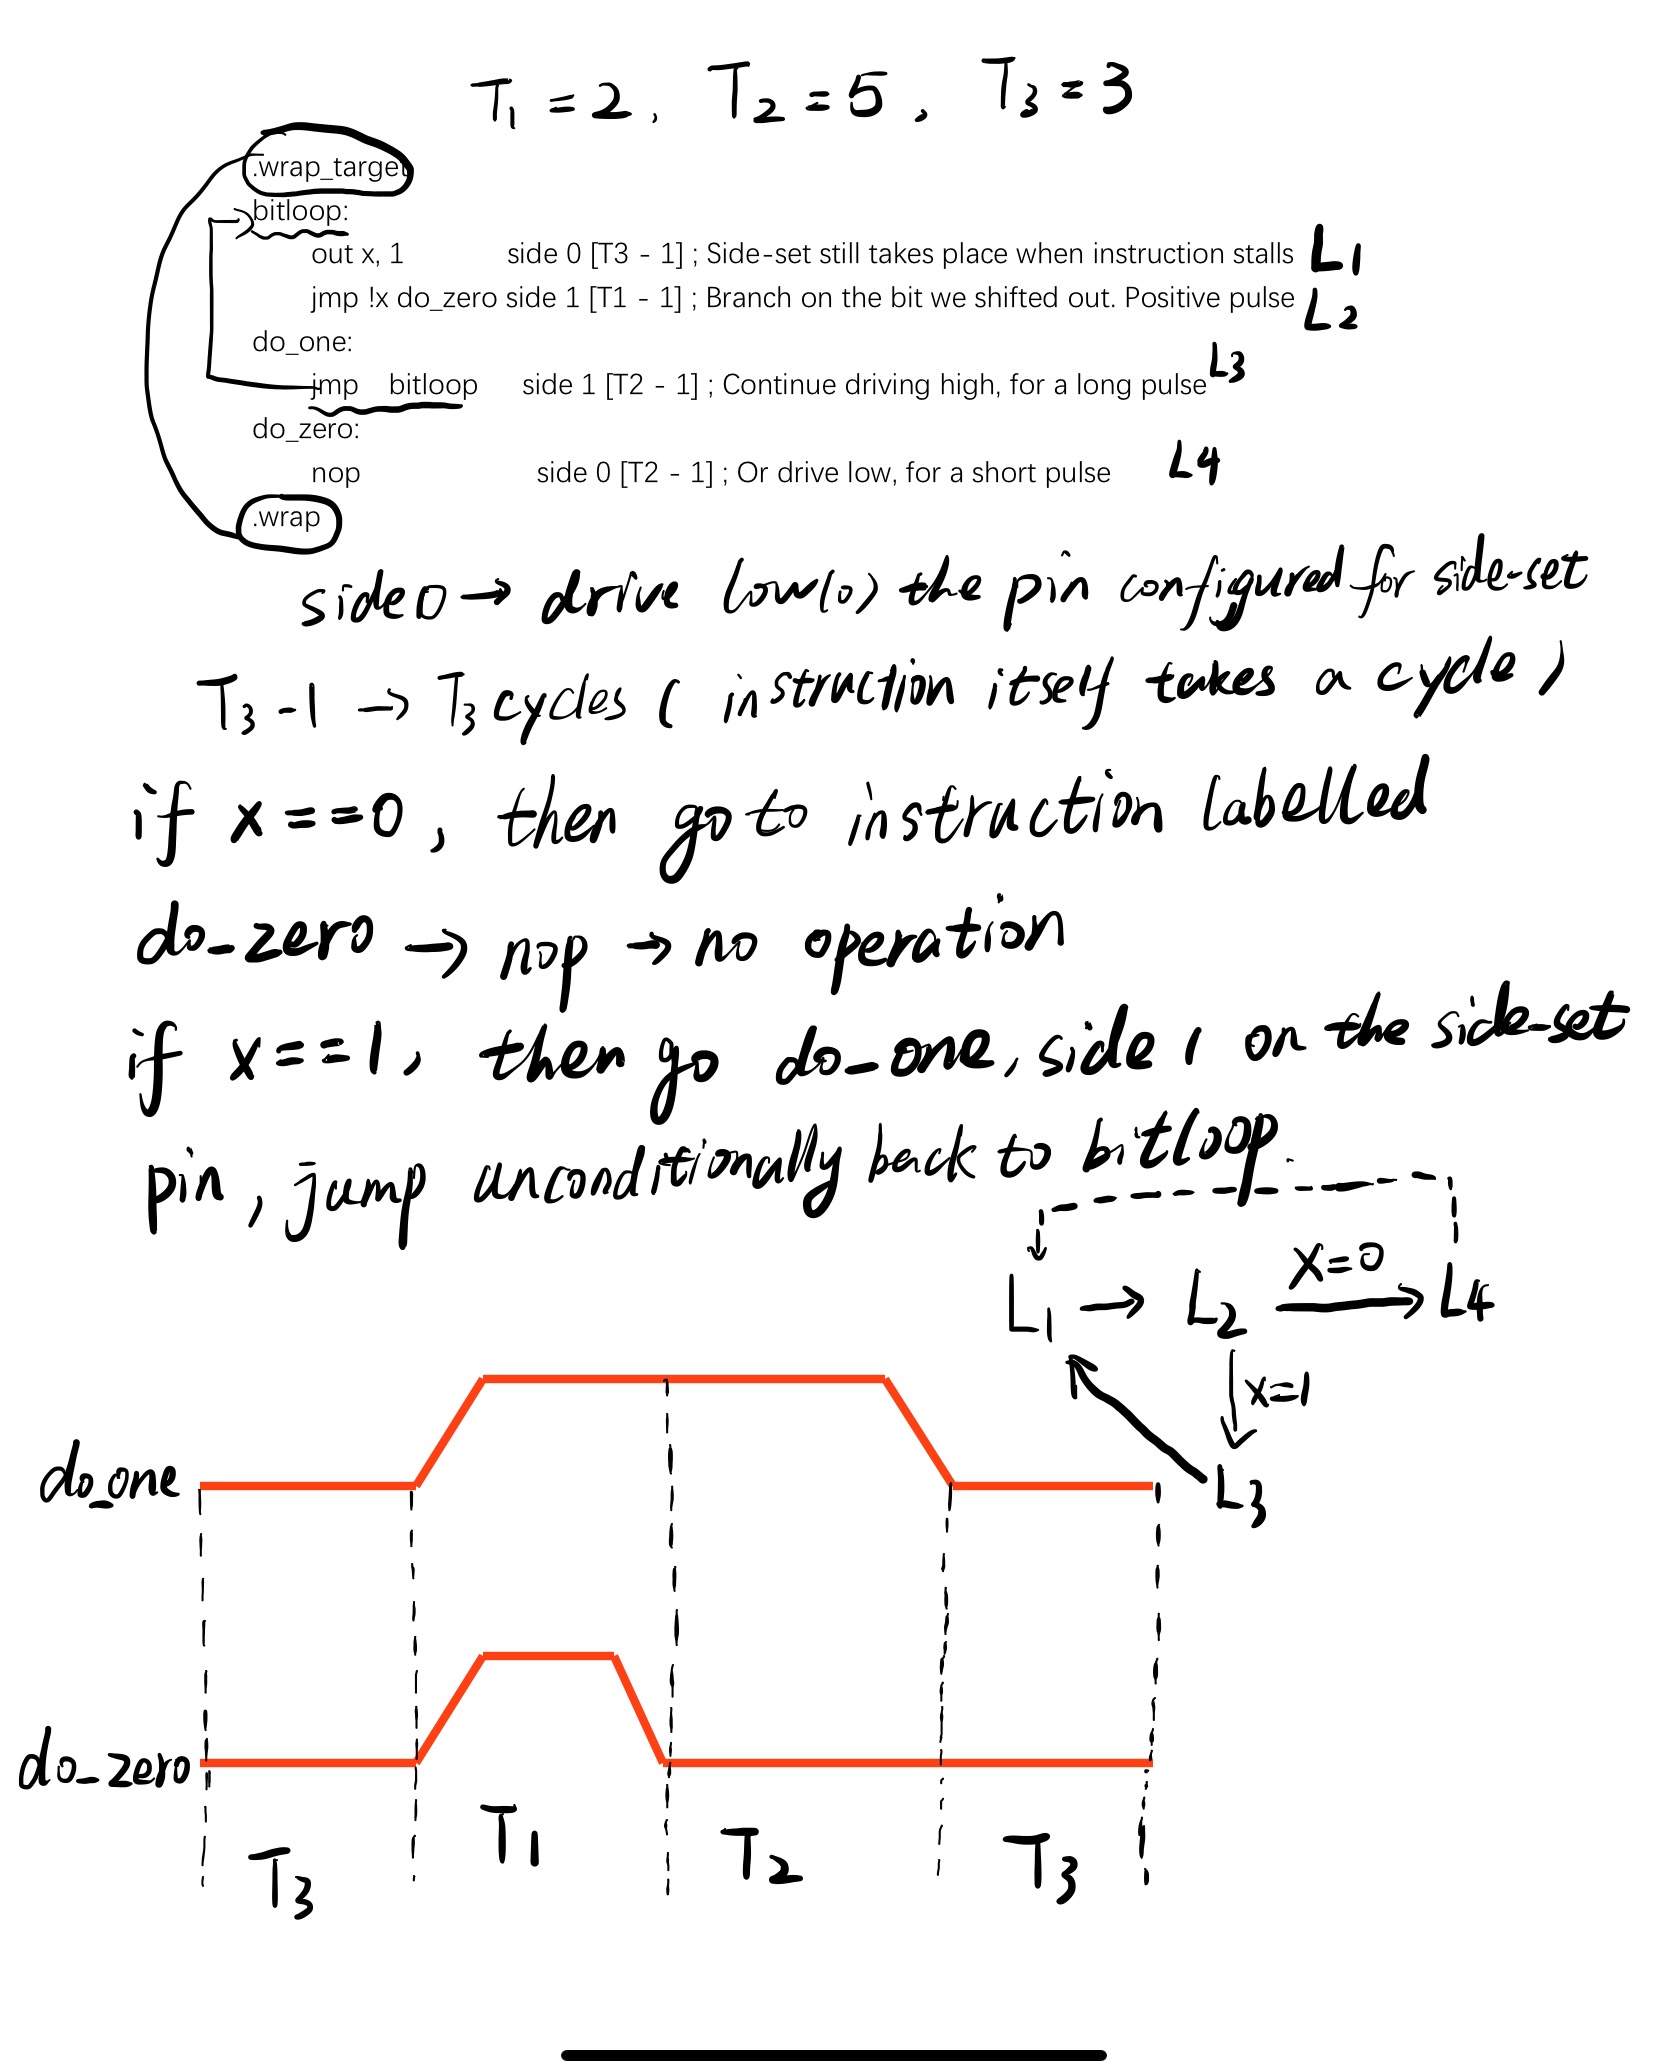 T1 = 2, T2 = 5, T3 = 3
.wrap_target
bitloop:
out x, 1 side 0 [T3 - 1] ; Side-set still takes place when instruction stalls L1
jmp !x do_zero side 1 [T1 - 1] ; Branch on the bit we shifted out. Positive pulse L2
do_one:
jmp bitloop side 1 [T2 - 1] ; Continue driving high, for a long pulse L3
do_zero:
nop side 0 [T2 - 1] ; Or drive low, for a short pulse L4
.wrap
side 0 → drive low(0) the pin configured for side-set
T3 -1 → T3 cycles ( instruction itself takes a cycle )
if x==0, then go to instruction labelled
do_zero → nop → no operation
if x==1, then go do_one, side 1 on the side-set
pin, jump unconditionally back to bitloop.
L1 → L2 X=0 → L4
x=1
L3
do_one
do_zero
T3 T1 T2 T3